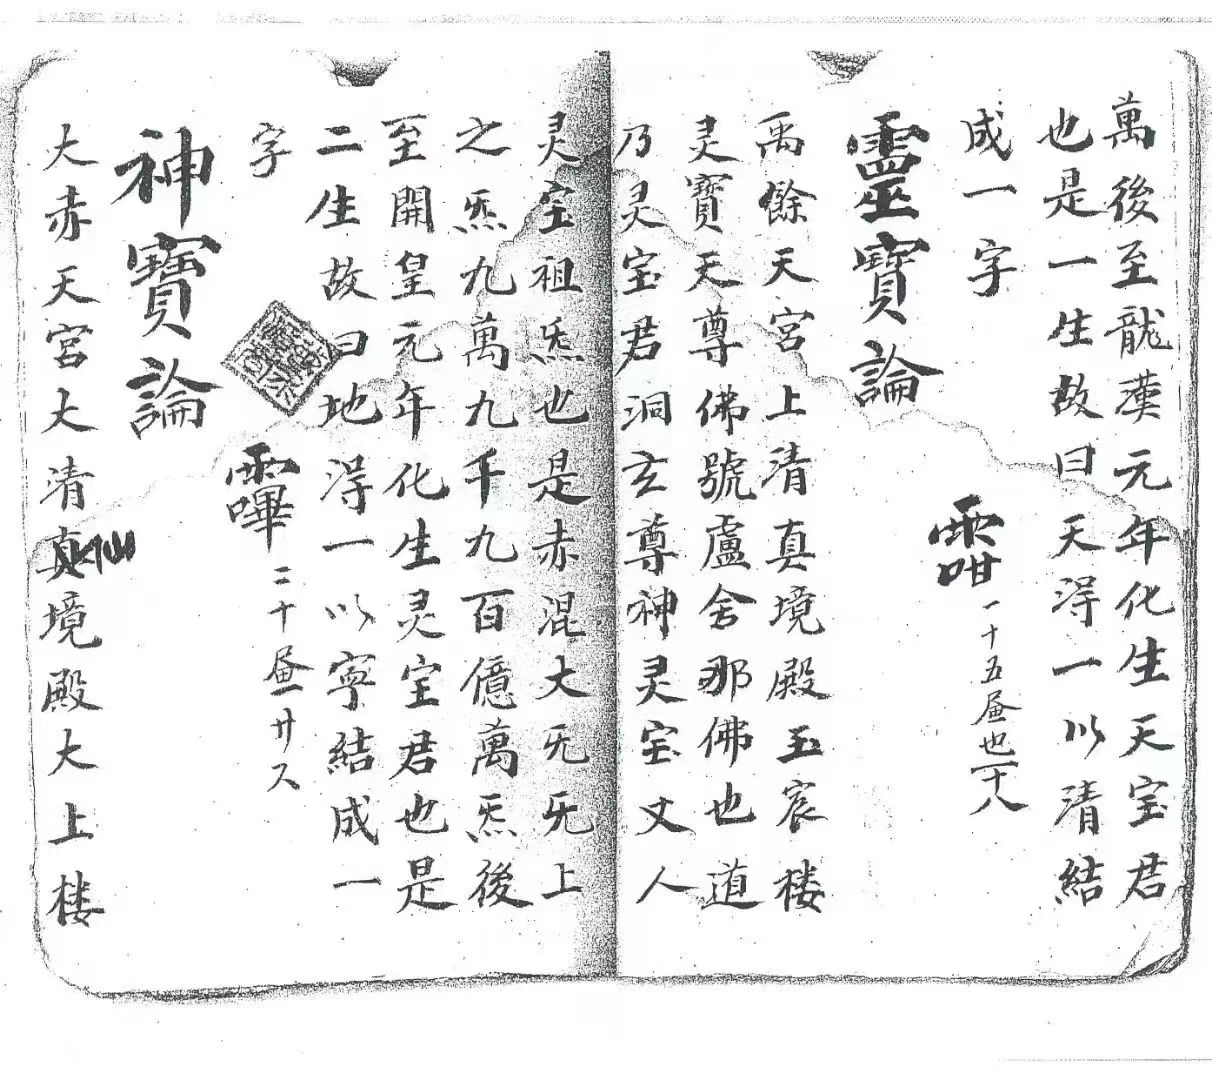 萬後至龍漢元年化生天宝君
也是一生故曰天得一以清結
成一字
一十五㞐也一十八
靈寶論
禹餘天宮上清真境殿玉宸楼
灵寶天尊佛號盧舍那佛也道
乃灵宝君洞玄尊神灵宝丈人
灵宝祖炁也是赤混大旡旡上
之炁九萬九千九百億萬炁後
至開皇元年化生灵宝君也是
二生故曰地得一以寧結成一
字
二十㞐一廿
神寶論
大赤天宮大清真境殿大上楼